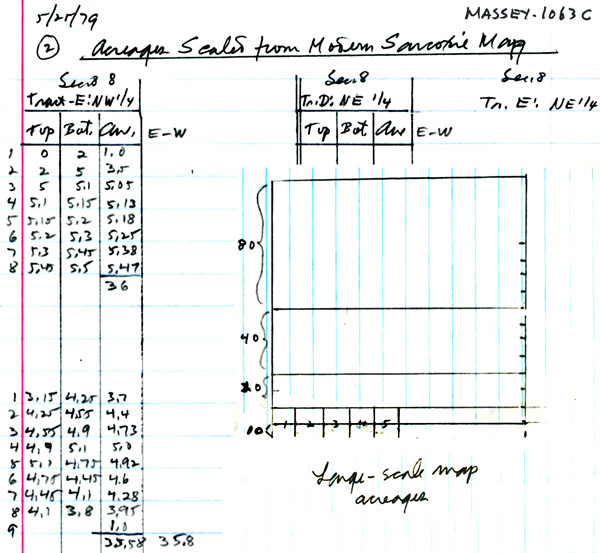 5/25/79
MASSEY-1063C
② Acreages Scaled from Modern Sarcoxie Map
Sec. 8
Tract-E: NW 1/4
Top Bot. Ave, E-W
1 0 2 1.0
2 2 5 3.5
3 5 5.1 5.05
4 5.1 5.15 5.13
5 5.15 5.2 5.18
6 5.2 5.3 5.25
7 5.3 5.45 5.38
8 5.45 5.5 5.47
36
1 3.15 4.25 3.7
2 4.25 4.55 4.4
3 4.55 4.9 4.73
4 4.9 5.1 5.0
5 5.1 4.75 4.92
6 4.75 4.45 4.6
7 4.45 4.1 4.28
8 4.1 3.8 3.95
9 1.0
35.58 35.8
Sec. 8
Tr. D: NE 1/4
Top Bot Ave E-W
Sec. 8
Tr. E: NE 1/4
80
40
20
10
1 2 3 4 5
Large-scale map
acreages